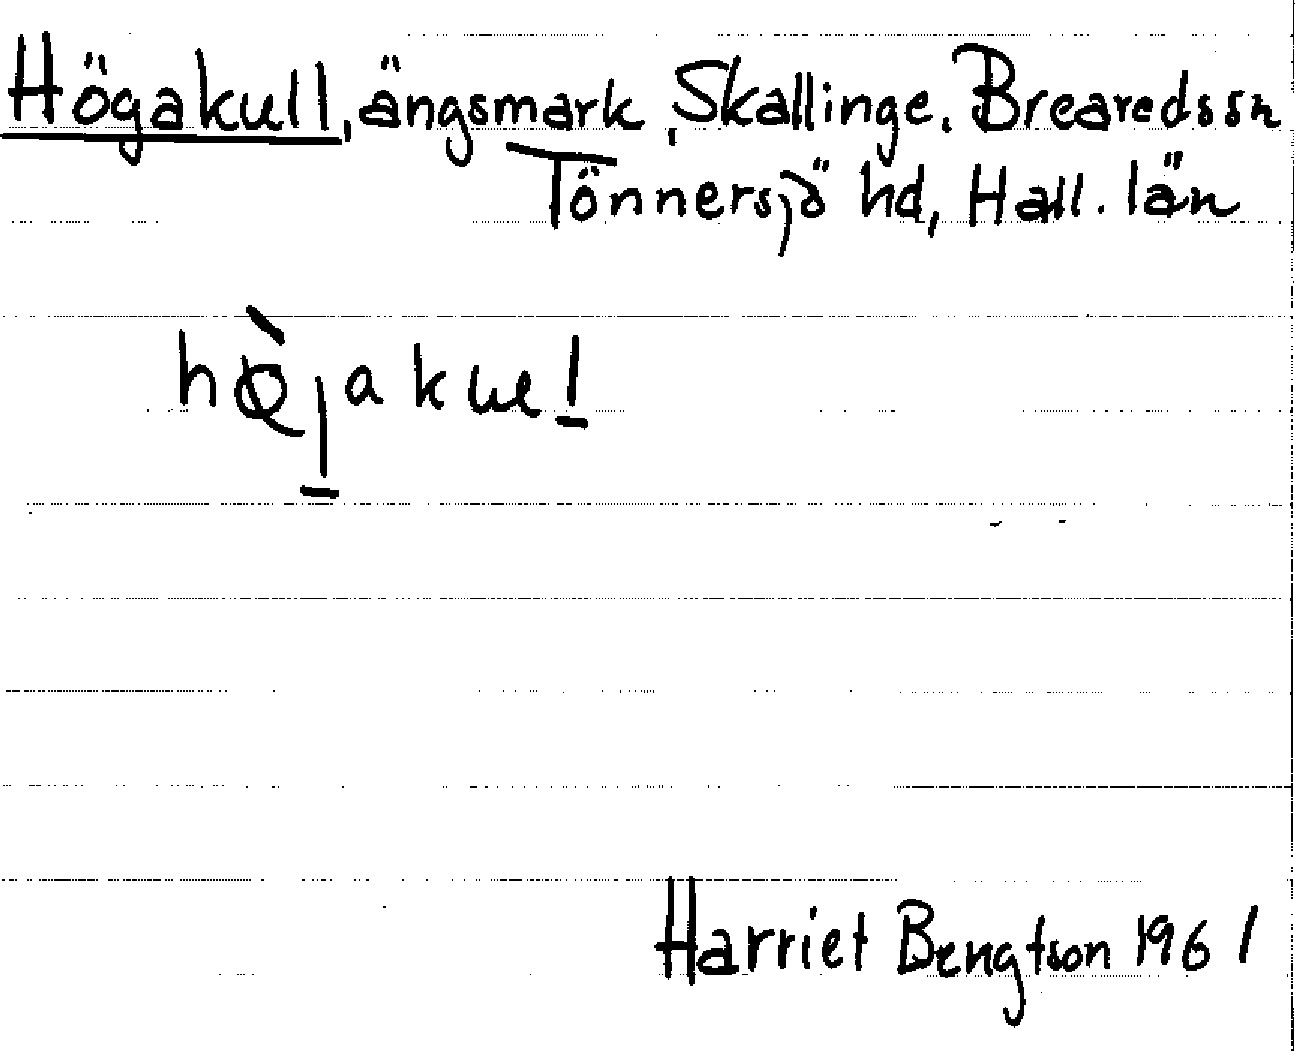 Högakull, ängsmark, Skallinge. Brearedssn
Tönnersjö hd, Hall. län
Harriet Bengtson 1961